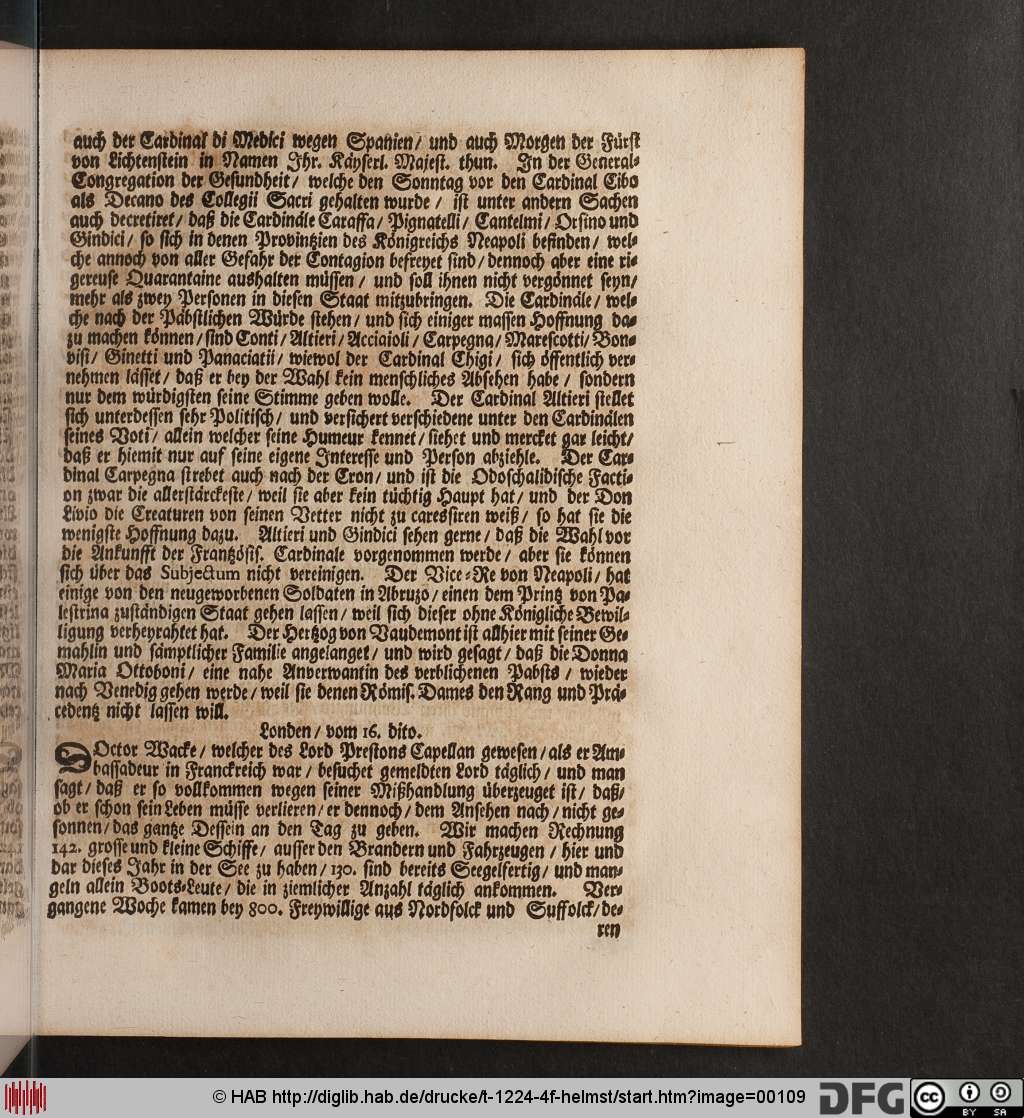 auch der Cardinal di Medici wegen Spanien/ und auch Morgen der Fürst
von Lichtenstein in Namen Ihr. Käyserl. Majest. thun. In der General-
Congregation der Gesundheit/ welche den Sonntag vor den Cardinal Cibo
als Decano des Collegii Sacri gehalten wurde/ ist unter andern Sachen
auch decretiret/ daß die Cardinäle Caraffa/ Pignatelli/ Cantelmi/ Orsino und
Gindici/ so sich in denen Provintzien des Königreichs Neapoli befinden/ wel-
che annoch von aller Gefahr der Contagion befreyet sind/ dennoch aber eine ri-
gereuse Quarantaine aushalten müssen/ und soll ihnen nicht vergönnet seyn/
mehr als zwey Personen in diesen Staat mitzubringen. Die Cardinäle/ wel-
che nach der Päbstlichen Würde stehen/ und sich einiger massen Hoffnung da-
zu machen können/ sind Conti/ Altieri/ Acciaioli/ Carpegna/ Marescotti/ Bon-
visi/ Ginetti und Panaciatii/ wiewol der Cardinal Chigi/ sich öffentlich ver-
nehmen lässet/ daß er bey der Wahl kein menschliches Absehen habe/ sondern
nur dem würdigsten seine Stimme geben wolle. Der Cardinal Altieri stellet
sich unterdessen sehr Politisch/ und versichert verschiedene unter den Cardinälen
seines Voti/ allein welcher seine Humeur kennet/ siehet und mercket gar leicht/
daß er hiemit nur auf seine eigene Interesse und Person abziehle. Der Car-
dinal Carpegna strebet auch nach der Cron/ und ist die Odoschalidische Facti-
on zwar die allerstärckeste/ weil sie aber kein tüchtig Haupt hat/ und der Don
Livio die Creaturen von seinen Vetter nicht zu caressiren weiß/ so hat sie die
wenigste Hoffnung dazu. Altieri und Gindici sehen gerne/ daß die Wahl vor
die Ankunfft der Frantzösis. Cardinale vorgenommen werde/ aber sie können
sich über das Subjectum nicht vereinigen. Der Vice-Re von Neapoli/ hat
einige von den neugeworbenen Soldaten in Abruzo/ einen dem Printz von Pa-
lestrina zuständigen Staat gehen lassen/ weil sich dieser ohne Königliche Bewil-
ligung verheyrahtet hat. Der Hertzog von Vaudemont ist allhier mit seiner Ge-
mahlin und sämptlicher Familie angelanget/ und wird gesagt/ daß die Donna
Maria Ottoboni/ eine nahe Anverwantin des verblichenen Pabsts/ wieder
nach Venedig gehen werde/ weil sie denen Römis. Dames den Rang und Prä-
cedentz nicht lassen will.
Londen/ vom 16. dito.
DOctor Wacke/ welcher des Lord Prestons Capellan gewesen/ als er Am-
bassadeur in Franckreich war/ besuchet gemeldten Lord täglich/ und man
sagt/ daß er so vollkommen wegen seiner Mißhandlung überzeuget ist/ daß/
ob er schon sein Leben müsse verlieren/ er dennoch/ dem Ansehen nach/ nicht ge-
sonnen/ das gantze Dessein an den Tag zu geben. Wir machen Rechnung
142. grosse und kleine Schiffe/ ausser den Brandern und Fahrzeugen/ hier und
dar dieses Jahr in der See zu haben/ 130. sind bereits Seegelfertig/ und man-
geln allein Boots-Leute/ die in ziemlicher Anzahl täglich ankommen. Ver-
gangene Woche kamen bey 800. Freywillige aus Nordfolck und Suffolck/ de-
ren
© HAB http://diglib.hab.de/drucke/t-1224-4f-helmst/start.htm?image=00109
DFG
cc
BY SA